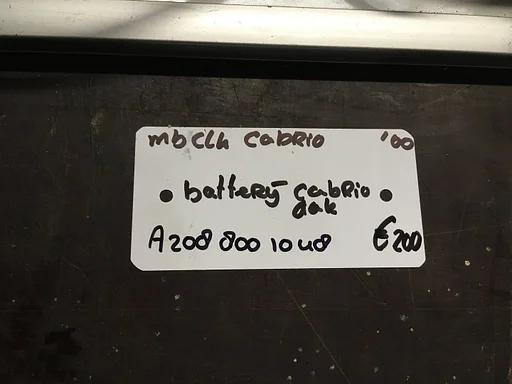 mb CLK Cabrio '00
• battery cabrio •
dak
A208 800 10 48 €200